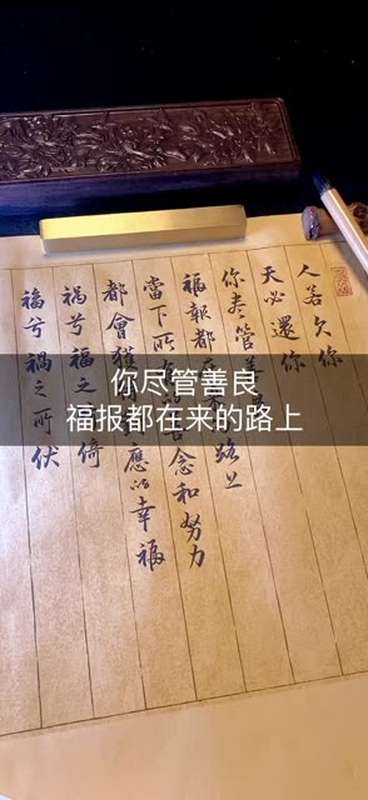 人若欠你
天必還你
你盡管善
福報都路上
當下所念和努力
都會獲應的幸福
禍兮福之倚
福兮禍之所伏
你尽管善良
福报都在来的路上